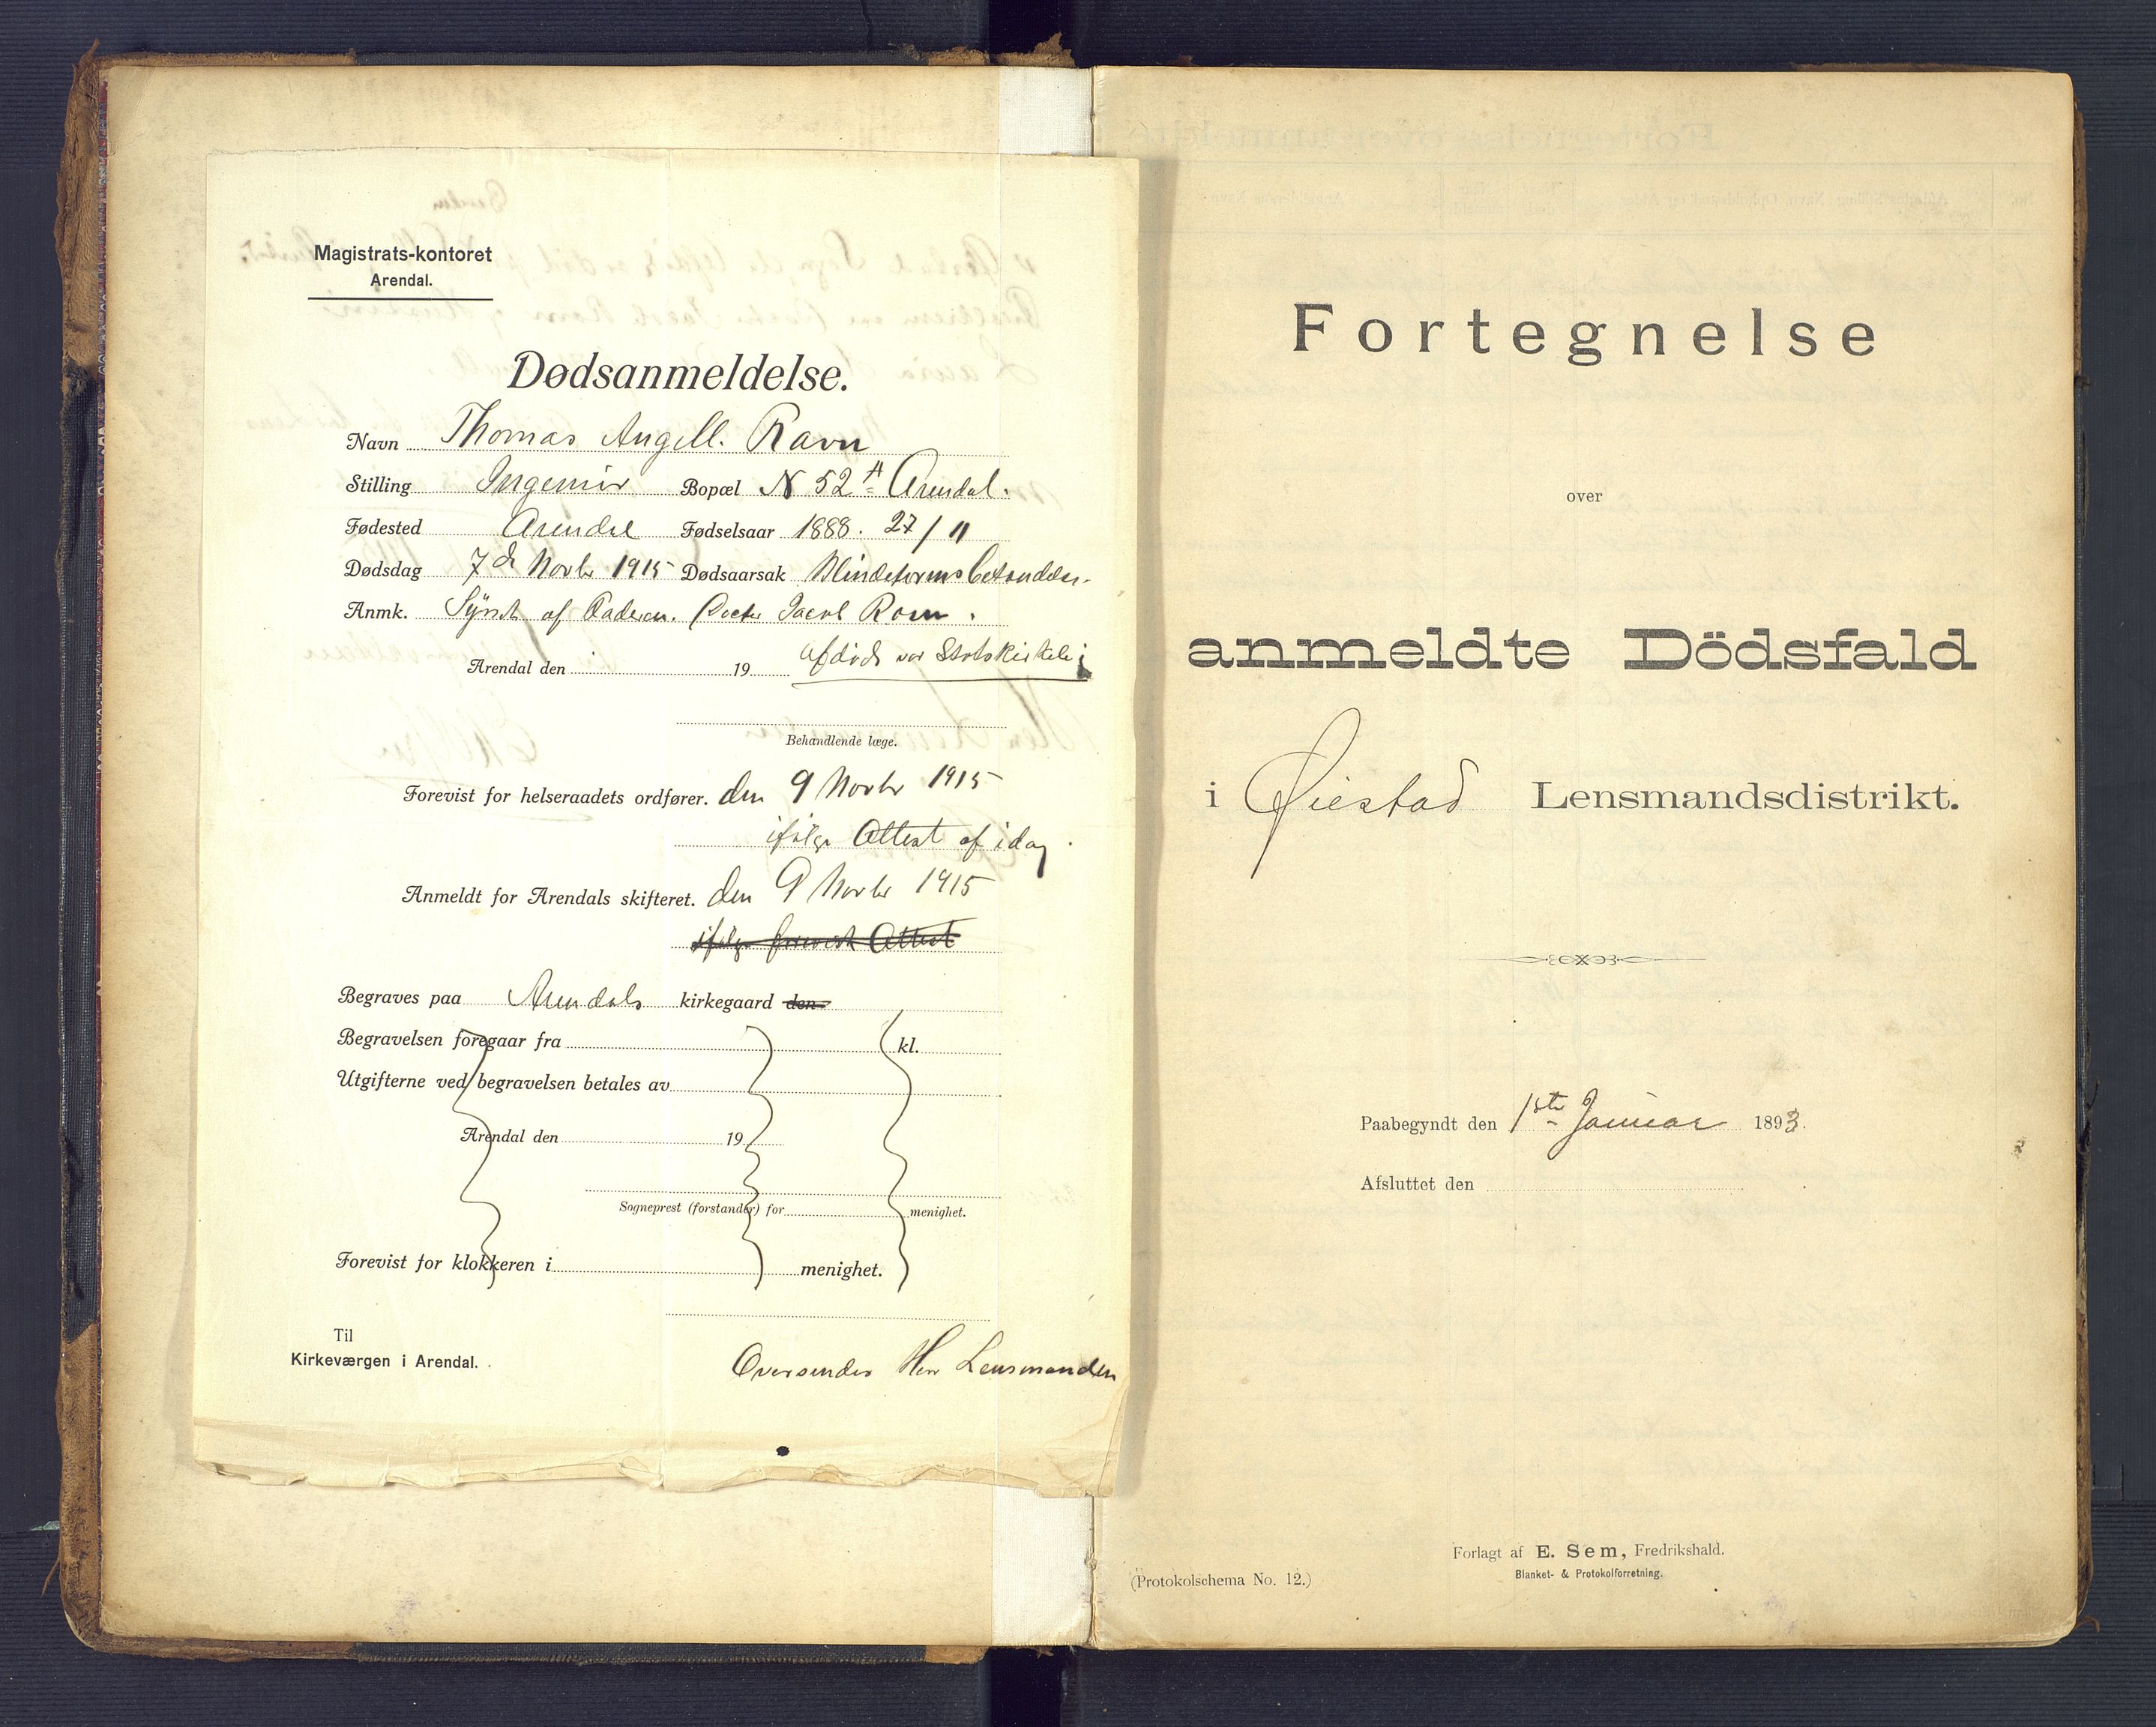 Magistrats-kontoret
Arendal.
Dødsanmeldelse.
Navn Thomas Angell. Ravn
Stilling Ingeniør Bopæl N 52 A Arendal.
Fødested Arendal Fødselsaar 1888. 27/11
Dødsdag 7de Novbr 1915 Dødsaarsak Blindetarmsbetændelse.
Anmk. af Faderen. Jacob Ravn.
Arendal den 19 Afdøde var Statskirkelig
Behandlende læge.
Forevist for helseraadets ordfører. den 9 Novbr 1915
ifølge Attest af idag.
Anmeldt for Arendals skifteret. den 9 Novbr 1915
ifølge forevist Attest
Begraves paa Arendals kirkegaard den
Begravelsen foregaar fra kl.
Utgifterne ved begravelsen betales av
Arendal den 19
Sogneprest (forstander) for menighet.
Forevist for klokkeren i menighet.
Til
Kirkeværgen i Arendal.
Oversendes Herr Lensmanden
Fortegnelse
over
anmeldte Dödsfald
i Øiestad Lensmandsdistrikt.
Paabegyndt den 1ste Januar 1893.
Afsluttet den
Forlagt af E. Sem, Fredrikshald.
Blanket- & Protokolforretning.
(Protokolschema No. 12.)